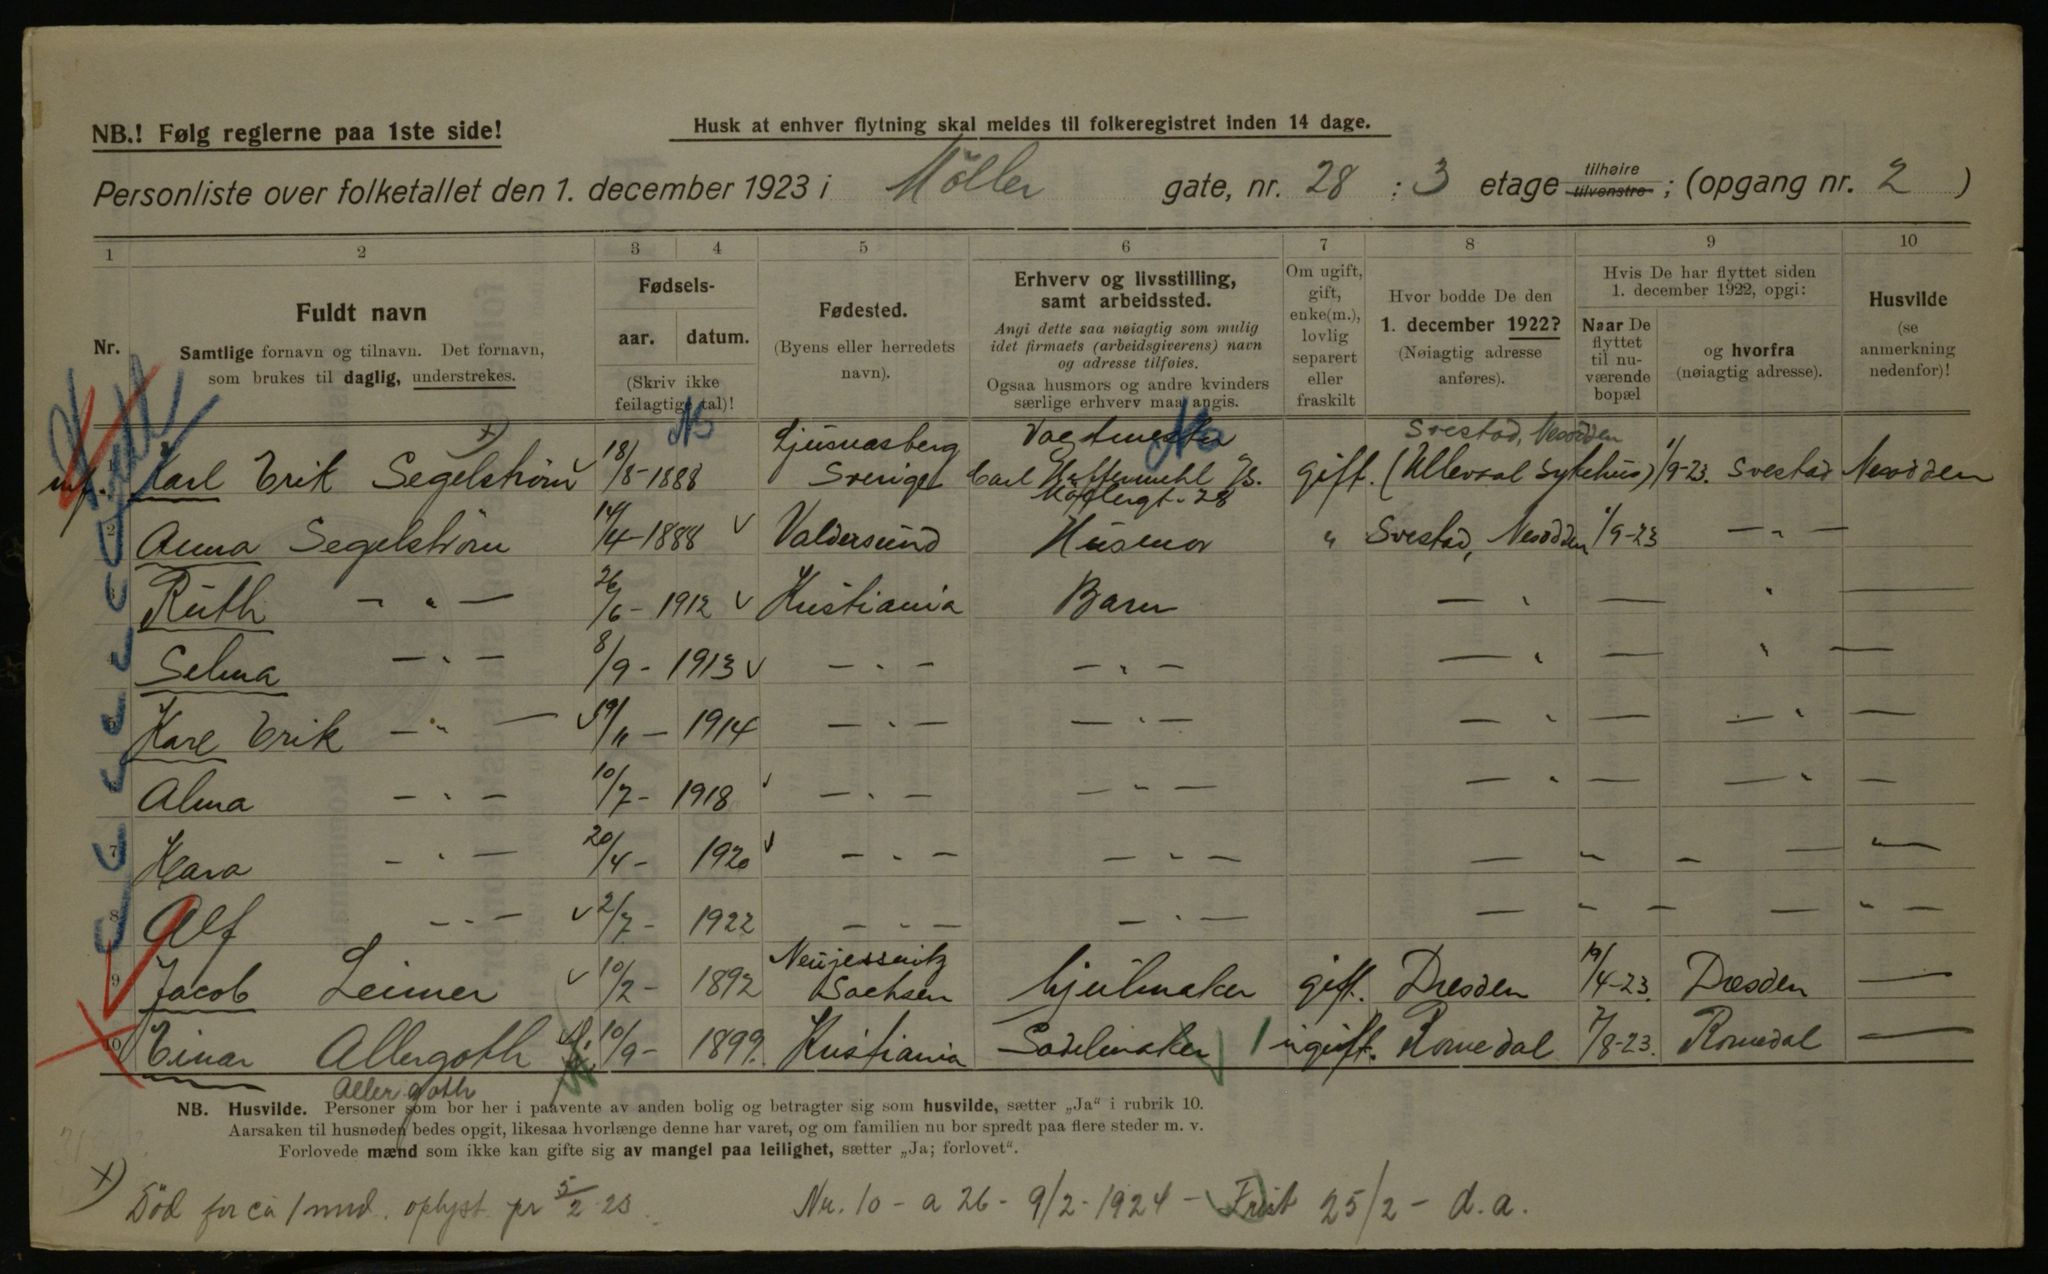 NB.! Følg reglerne paa 1ste side!
Husk at enhver flytning skal meldes til folkeregistret inden 14 dage.
Personliste over folketallet den 1. december 1923 i Möller gate, nr. 28 : 3 etage tilhøire tilvenstre ; (opgang nr. 2 )
1 2 3 4 5 6 7 8 9 10
Nr.
Fuldt navn
Samtlige fornavn og tilnavn. Det fornavn,
som brukes til daglig, understrekes.
Fødsels-
aar. datum.
(Skriv ikke
feilagtige tal)!
Fødested.
(Byens eller herredets
navn).
Erhverv og livsstilling,
samt arbeidssted.
Angi dette saa nøiagtig som mulig
idet firmaets (arbeidsgiverens) navn
og adresse tilføies.
Ogsaa husmors og andre kvinders
særlige erhverv maa angis.
Om ugift,
gift,
enke(m.),
lovlig
separert
eller
fraskilt
Hvor bodde De den
1. december 1922?
(Nøiagtig adresse
anføres).
Hvis De har flyttet siden
1. december 1922, opgi:
Naar De
flyttet
til nu-
værende
bopæl
og hvorfra
(nøiagtig adresse).
Husvilde
(se
anmerkning
nedenfor)!
No No
x) Ljusnasberg Vagtmester Svestad, Nesodden
1 Karl Erik Segelström 18/8-1888 Sverige Carl gift. (Ullevaal Sykehus) 1/9-23. Svestad Nesodden
Möllergt. 28
2 Anna Segelström 14/4-1888 Valdersund Husmor " Svestad, Nesodden 1/9-23 — " —
3 Ruth — " — 26/6-1912 Kristiania Barn — " — " —
4 Selma — " — 8/9-1913 — " — — " — — " — " —
5 Karl Erik — " — 19/11-1914 — " — — " — — " — — " —
Alma — " — 10/7-1918 — " — — " — — " — — " —
7 Klara — " — 20/4-1920 — " — — " — — " — — " —
8 Alf — " — 2/7-1922 — " — — " — — " — — " —
9 Jacob Leimer 10/2-1892 Sachsen hjulmaker gift. Dresden 19/4-23. Dresden —
10 Einar Allergoth 10/9-1899. Kristiania Sadelmaker ugift. Romedal 7/8-23. Romedal —
Allergoth
NB. Husvilde. Personer som bor her i paavente av anden bolig og betragter sig som husvilde, sætter „Ja“ i rubrik 10.
Aarsaken til husnøden bedes opgit, likesaa hvorlænge denne har varet, og om familien nu bor spredt paa flere steder m. v.
Forlovede mænd som ikke kan gifte sig av mangel paa leilighet, sætter „Ja; forlovet“.
x) Död for ca 1 mnd. oplyst pr 5/2-23. Nr. 10 - a 26 - 9/2-1924 - Frist 25/2 - d.a.